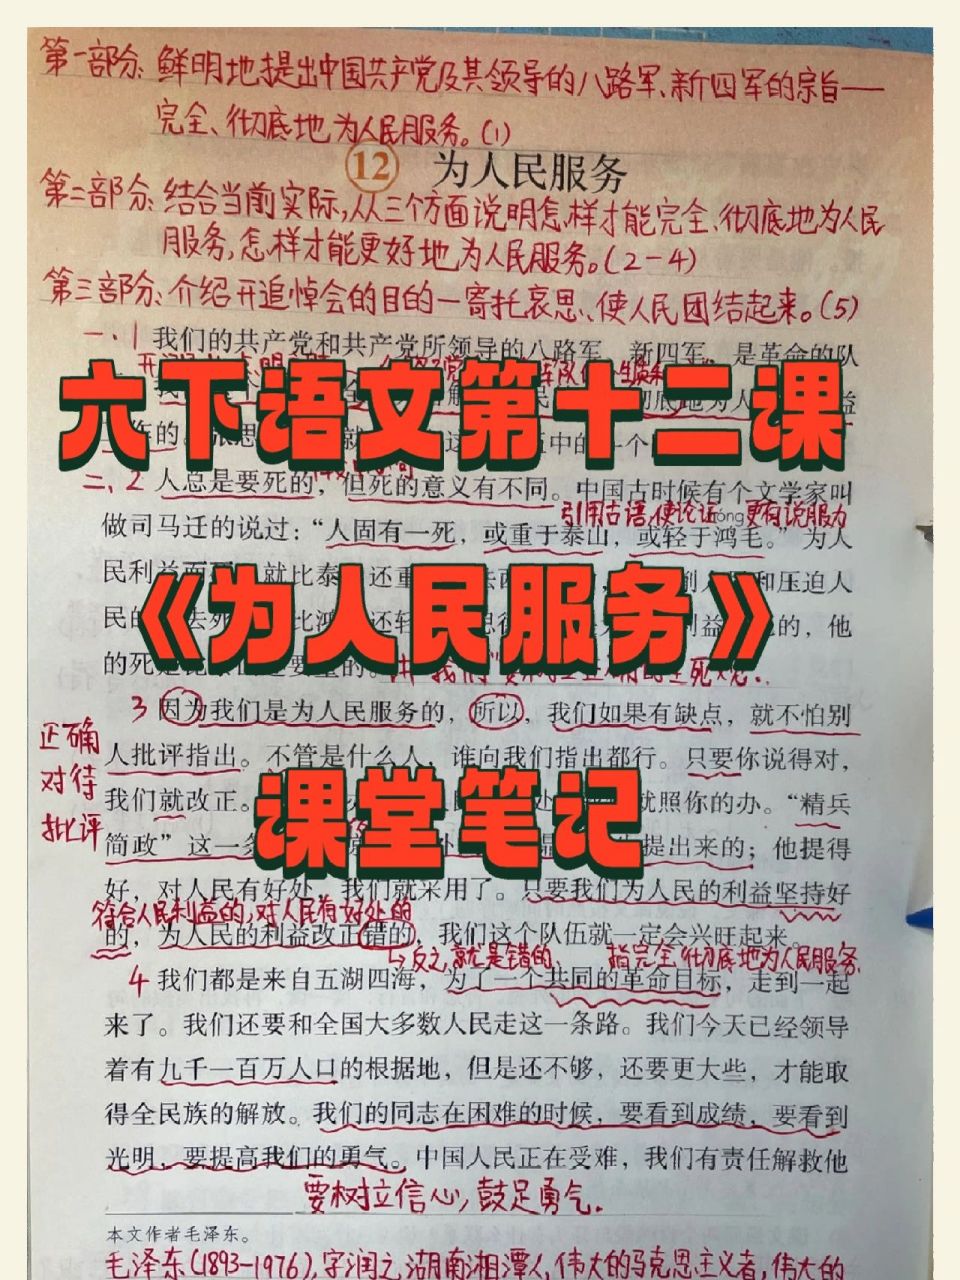 第一部分：鲜明地提出中国共产党及其领导的八路军、新四军的宗旨——
完全、彻底地为人民服务。(1)
12 为人民服务
第二部分：结合当前实际，从三个方面说明怎样才能完全、彻底地为人民
服务，怎样才能更好地为人民服务。(2-4)
第三部分：介绍开追悼会的目的一寄托哀思、使人民团结起来。(5)
一、1 我们的共产党和共产党所领导的八路军、新四军，是革命的队
六下语文第十二课
二、2 人总是要死的，但死的意义有不同。中国古时候有个文学家叫
引用古语，使论证更有说服力
做司马迁的说过：“人固有一死，或重于泰山，或轻于鸿毛。”为人
民利益 就比泰 还重 和压迫人
《为人民服务》
民的 去死 比鸿 还轻 利益 的，他
的死
3 因为我们是为人民服务的，所以，我们如果有缺点，就不怕别
正确
对待
批评
人批评指出。不管是什么人，谁向我们指出都行。只要你说得对，
我们就改正。 就照你的办。“精兵
课堂笔记
简政”这一条 提出来的；他提得
好，对人民有好处，我们就采用了。只要我们为人民的利益坚持好
符合人民利益的，对人民有好处的
的，为人民的利益改正错的，我们这个队伍就一定会兴旺起来。
反之就是错的、 指完全彻底地为人民服务
4 我们都是来自五湖四海，为了一个共同的革命目标，走到一起
来了。我们还要和全国大多数人民走这一条路。我们今天已经领导
着有九千一百万人口的根据地，但是还不够，还要更大些，才能取
得全民族的解放。我们的同志在困难的时候，要看到成绩，要看到
光明，要提高我们的勇气。中国人民正在受难，我们有责任解救他
要树立信心，鼓足勇气。
本文作者毛泽东。
毛泽东(1893-1976)，字润之，湖南湘潭人，伟大的马克思主义者，伟大的